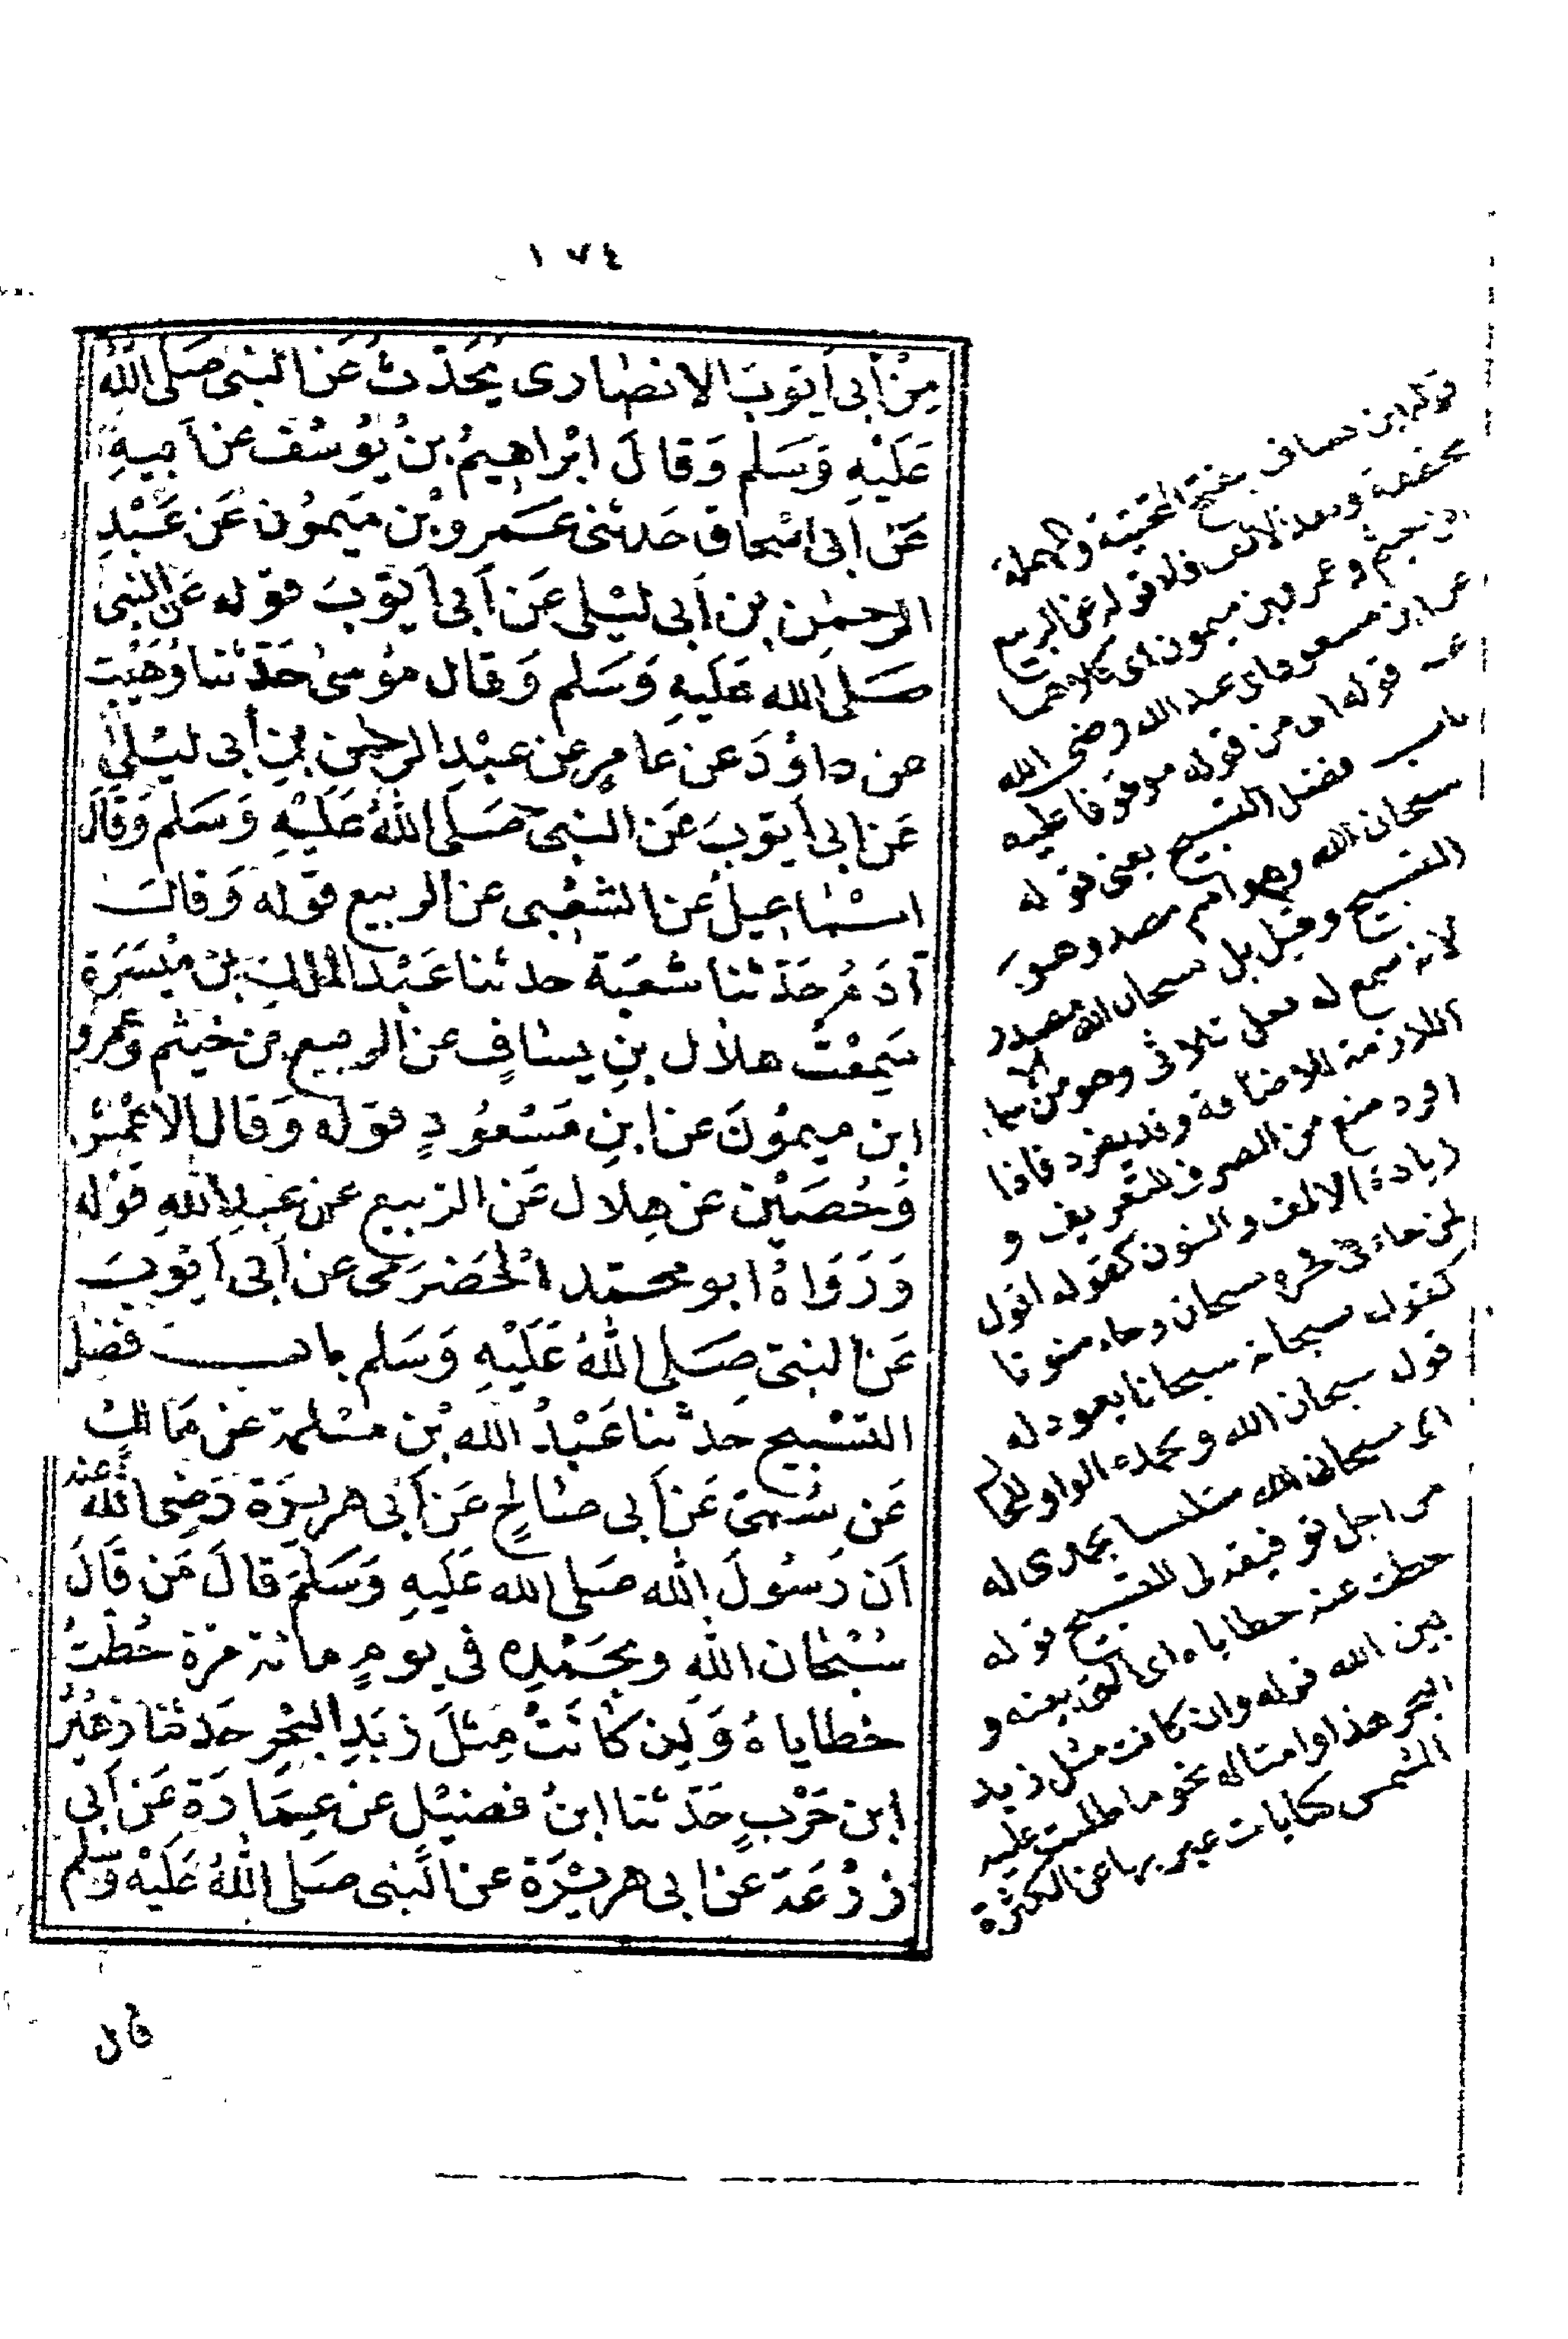 ١٧٤
مِنْ أَبى أَيّوبَ الانصَارى يُحَدّثُ عَن النبى صَلى اللهُ
عَلَيْهِ وَسَلم وَقالَ ابْراهِيمُ بنُ يُوسُفَ عن اَبيهِ
عَن اَبى اسْحاقَ حَدثنى عَمرو بْن مَيمُون عَن عَبْدِ
الرحمٰن بن اَبى ليْلى عَن اَبى اَيّوبَ قوله عَن النبى
صَلى الله عَلَيهِ وَسَلم وَقال مؤسىٰ حَدّثنا وُهَيْب
عن داوُدَ عن عامِرٍ عن عبْدِ الرحمن بنِ أبى ليْلىٰ
عَن ابى اَيّوبَ عَن النبى صَلى اللهُ عَلَيْهِ وَسَلم وَقالَ
اسْمٰاعِيلُ عَن الشعْبى عن الربيع قوله وَقالَ
آدَمُ حَدّثنا شعبَة حدثنا عَبْد الملك بن مَيْسَرَة
سَمِعْتُ هلال بنِ يسَافٍ عن الربيع بن خيثم وَعمرو
ابن ميمُونَ عن ابنِ مَسْعُودٍ قوله وَقال الاعْمَش
وَحُصَيْن عن هِلال عَن الربيع عن عبدِ اللهِ قوْله
وَرَوَاهُ ابو محمّد الحَضرَمى عن اَبى اَيّوبَ
عَن النبىّ صَلى اللهُ عَلَيْهِ وَسَلم باب فضْل
التسْبيح حَدثنا عَبْدُ الله بْن مسْلمة عن مَالكٍ
عَن سُمَىّ عَن اَبى صَالحٍ عَن اَبى هريرَة رَضِى اللهُ عنه
اَن رَسُولَ الله صَلى الله عَلَيهِ وَسَلمَ قالَ مَن قَالَ
سُبْحَان الله وبحَمْدِهِ فى يومٍ مائة مَرّة حُطّتْ
خطاياهُ وَلِن كانَتْ مِثلَ زبَدِ البَحْرِ حَدثنا زهَيْرُ
ابن حَرْبٍ حَدّثنا ابنُ فضيْلٍ عن عِمَارَة عَن اَبى
زرْعَة عَن ابى هريْرَة عن النبى صَلى اللهُ عَلَيْه وَسَلم
قال
قوله ابن يساف بفتح التحتية والمهملة
مخففة وبعد الالف فاء قوله عن الربيع
ابن خيثم وعمرو بن ميمون اى كلاهما
عن ابن مسعود اى عبد الله رضى الله
عنه قوله اى من قوله موقوفا عليه
باب فضل التسبيح يعنى قوله
سبحان الله وهو اسم مصدر وهو
التسبيح وقيل بل سبحان الله مصدر
لانه سمع له فعل ثلاثى وهو من
اللازمة للاضافة وقد يفرد فاذا
افرد منع من الصرف للتعريف و
زيادة الالف والنون كقوله اقول
لمن جاءنى فخره سبحان وجاء منونا
كقوله سبحانه سبحانا يعود له
قوله سبحان الله وبحمده الواو للحال
اى سبحان الله متلبسا بحمدى له
من اجل توفيقه لى للتسبيح قوله
حطت عنه خطاياه اى التى بينه و
بين الله قوله وان كانت مثل زبد
البحر هذا وامثاله نحو ما طلعت عليه
الشمس كنايات عبر بها عن الكثرة